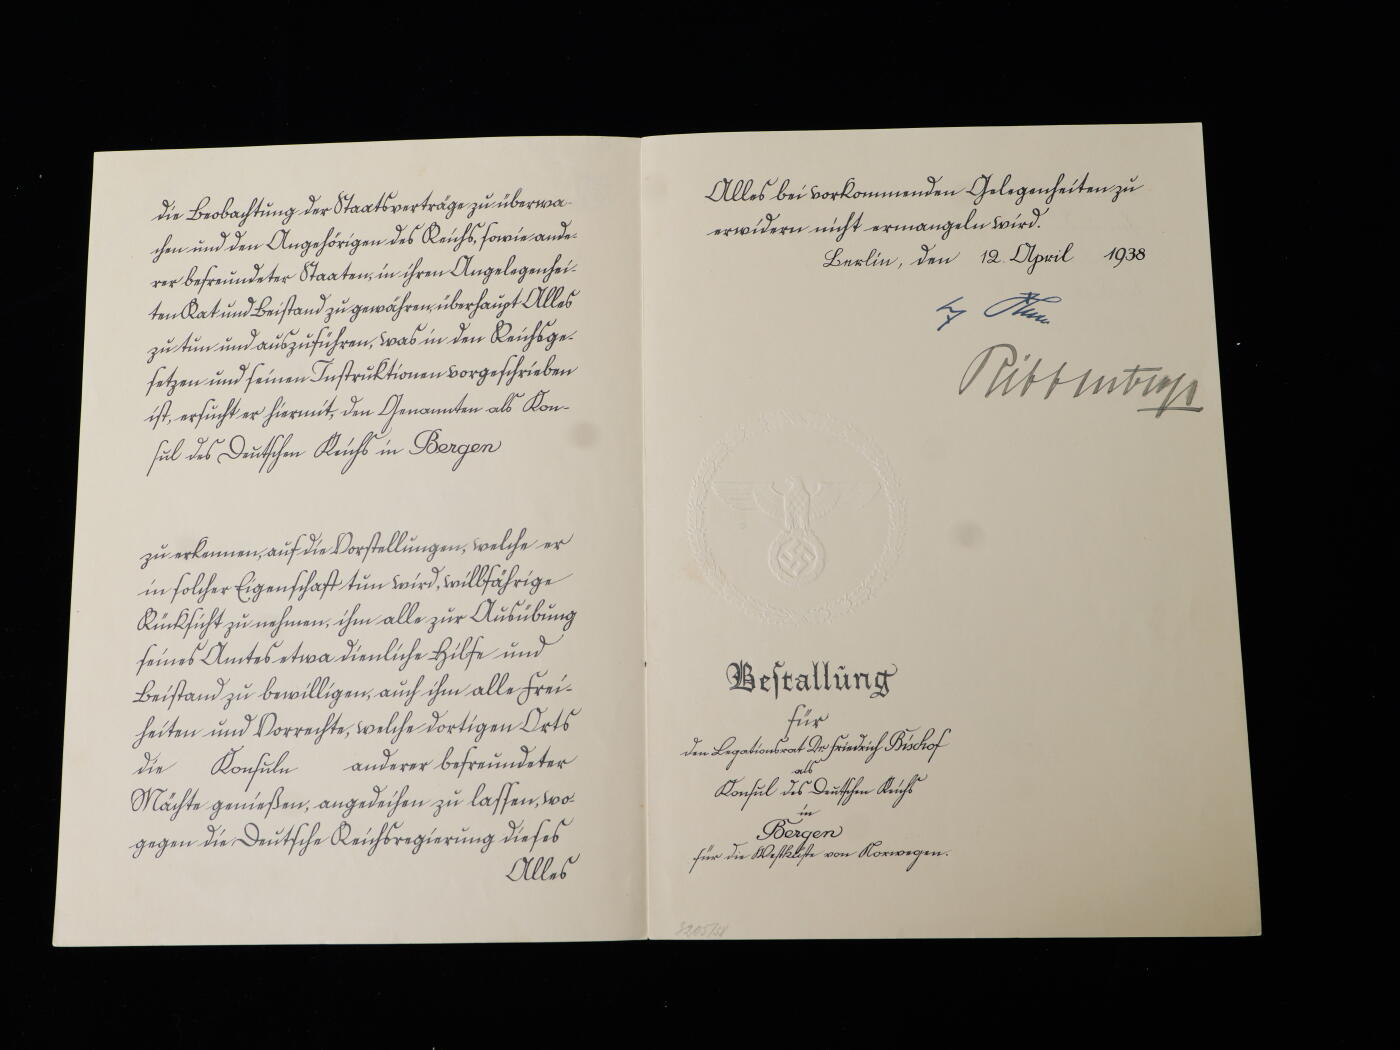 die Beobachtung der Staatsverträge zu überwa-
chen und den Angehörigen des Reichs, sowie ande-
rer befreundeter Staaten, in ihren Angelegenhei-
ten Rat und Beistand zu gewähren, überhaupt Alles
zu tun und auszuführen, was in den Reichsge-
setzen und seinen Instruktionen vorgeschrieben
ist, ersucht er hiermit, den Genannten als Kon-
sul des Deutschen Reichs in Bergen
zu erkennen, auf die Vorstellungen, welche er
in solcher Eigenschaft tun wird, willfährige
Rücksicht zu nehmen, ihm alle zur Ausübung
seines Amtes etwa dienliche Hilfe und
Beistand zu bewilligen, auch ihm alle Frei-
heiten und Vorrechte, welche dortigen Orts
die Konsuln anderer befreundeter
Mächte genießen, angedeihen zu lassen, wo-
gegen die Deutsche Reichsregierung dieses
Alles
Alles bei vorkommenden Gelegenheiten zu
erwidern nicht ermangeln wird.
Berlin, den 12. April 1938
Ribbentrop
Bestallung
für
den Legationsrat Dr. Friedrich Bischof
als
Konsul des Deutschen Reichs
in
Bergen
für die Westküste von Norwegen.